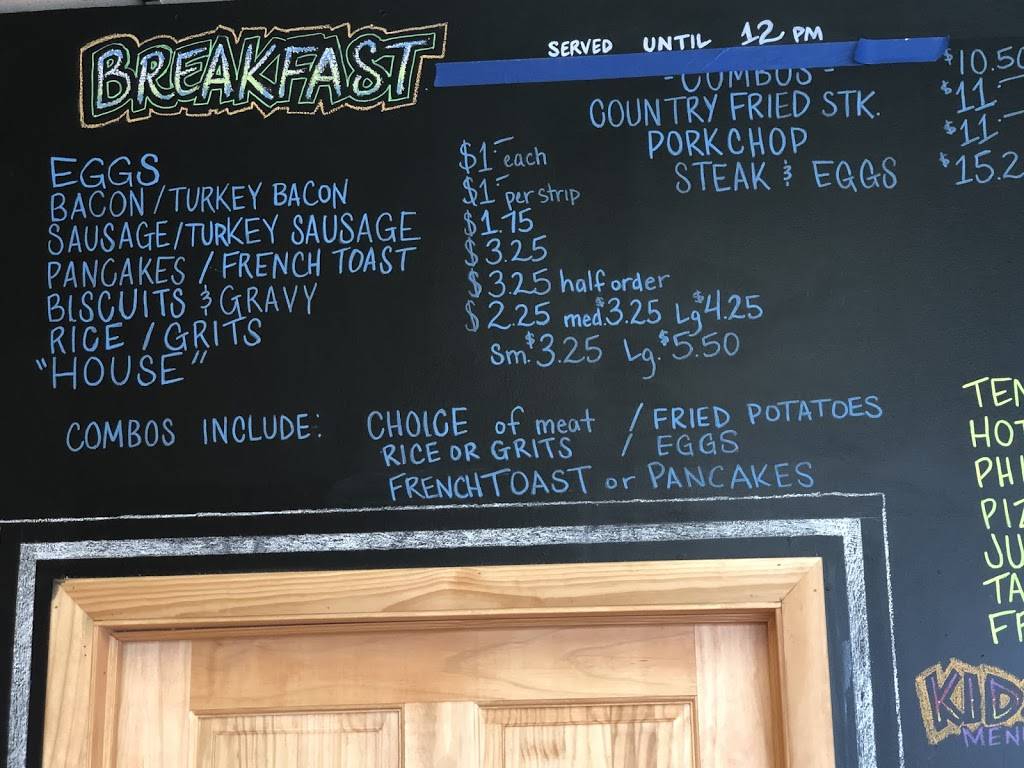 BREAKFAST
SERVED UNTIL 12 PM
- COMBOS - $10.50
COUNTRY FRIED STK. $11.-
PORK CHOP $11.-
STEAK & EGGS $15.2
EGGS $1.- each
BACON / TURKEY BACON $1.- per strip
SAUSAGE/TURKEY SAUSAGE $1.75
PANCAKES / FRENCH TOAST $3.25
BISCUITS & GRAVY $3.25 half order
RICE / GRITS $2.25 med. $3.25 Lg $4.25
"HOUSE" Sm. $3.25 Lg. $5.50
COMBOS INCLUDE: CHOICE of meat / FRIED POTATOES
RICE OR GRITS / EGGS
FRENCH TOAST or PANCAKES
TEN
HOT
PHI
PIZ
JU
TA
FR
KID
MEN